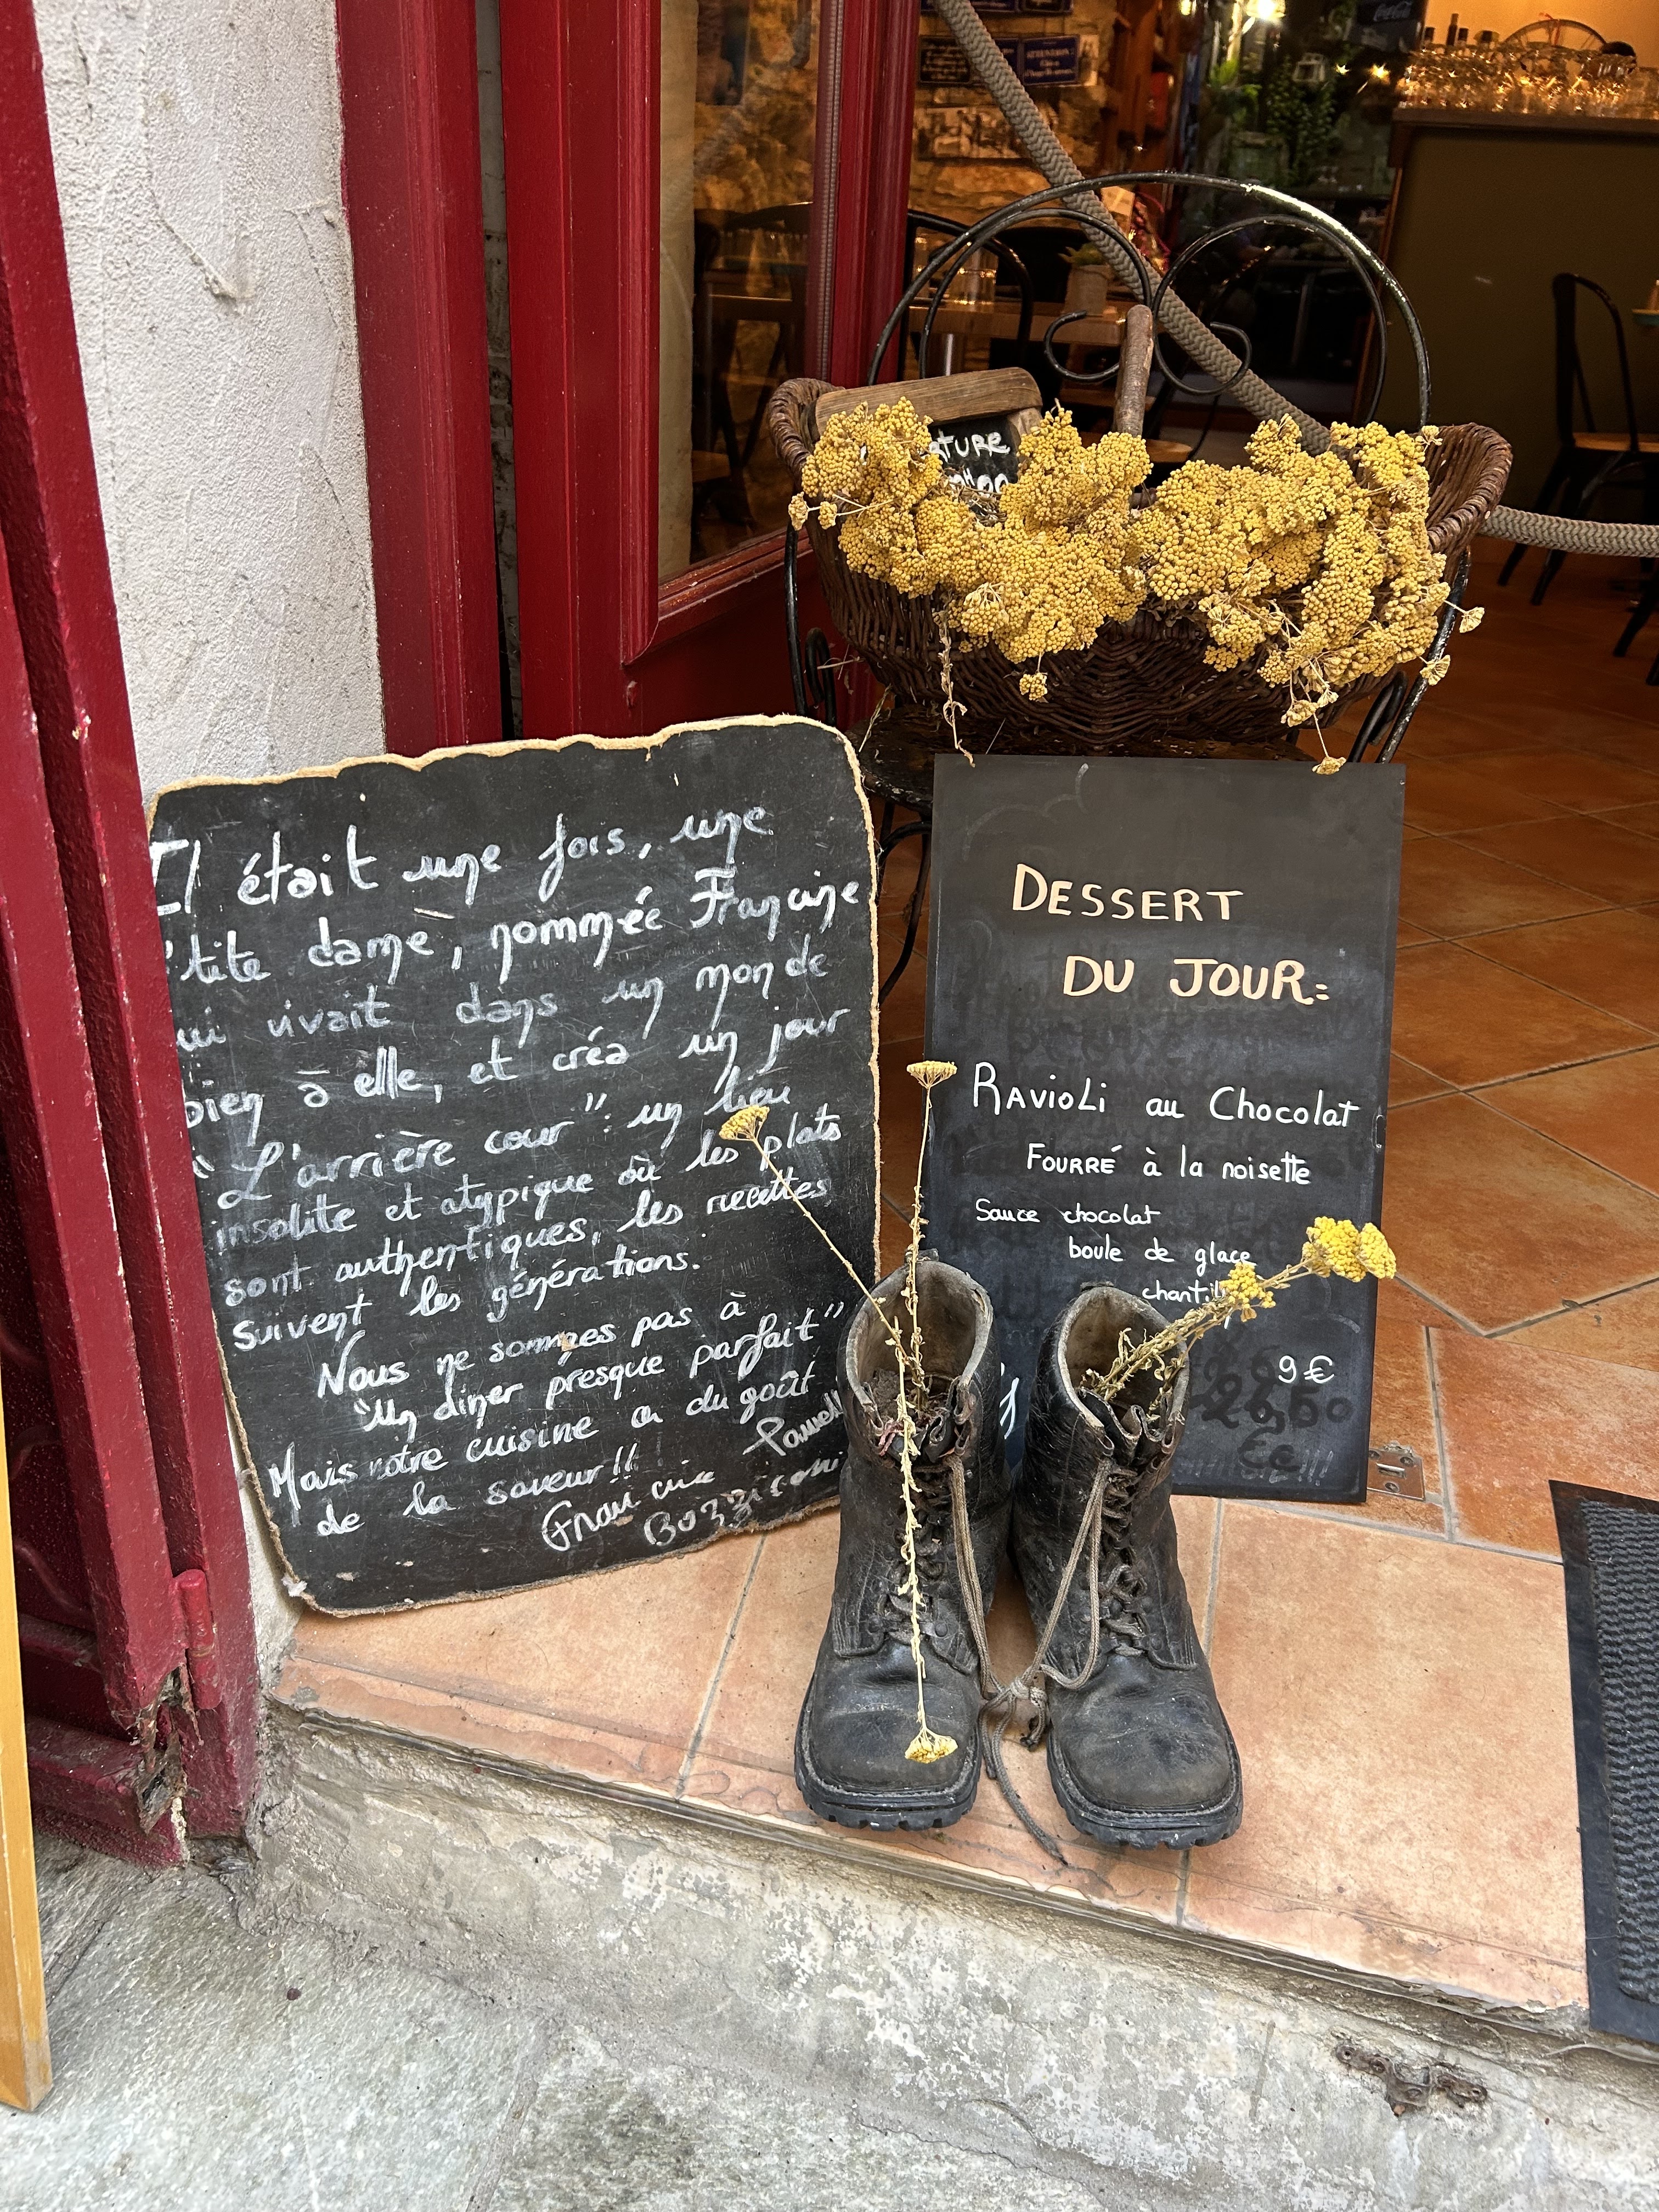 Il était une fois, une
'tite dame, nommée Francine
ui vivait dans un monde
bien à elle, et créa un jour
"L'arrière cour": un lieu
insolite et atypique où les plats
sont authentiques, les recettes
suivent les générations.
Nous ne sommes pas à
"Un diner présque parfait"
Mais notre cuisine a du goût
de la saveur!!
Francine
ATURE
DESSERT
DU JOUR:
RAVIOLI au Chocolat
FOURRÉ à la noisette
Sauce chocolat
boule de glace
chantil
9€